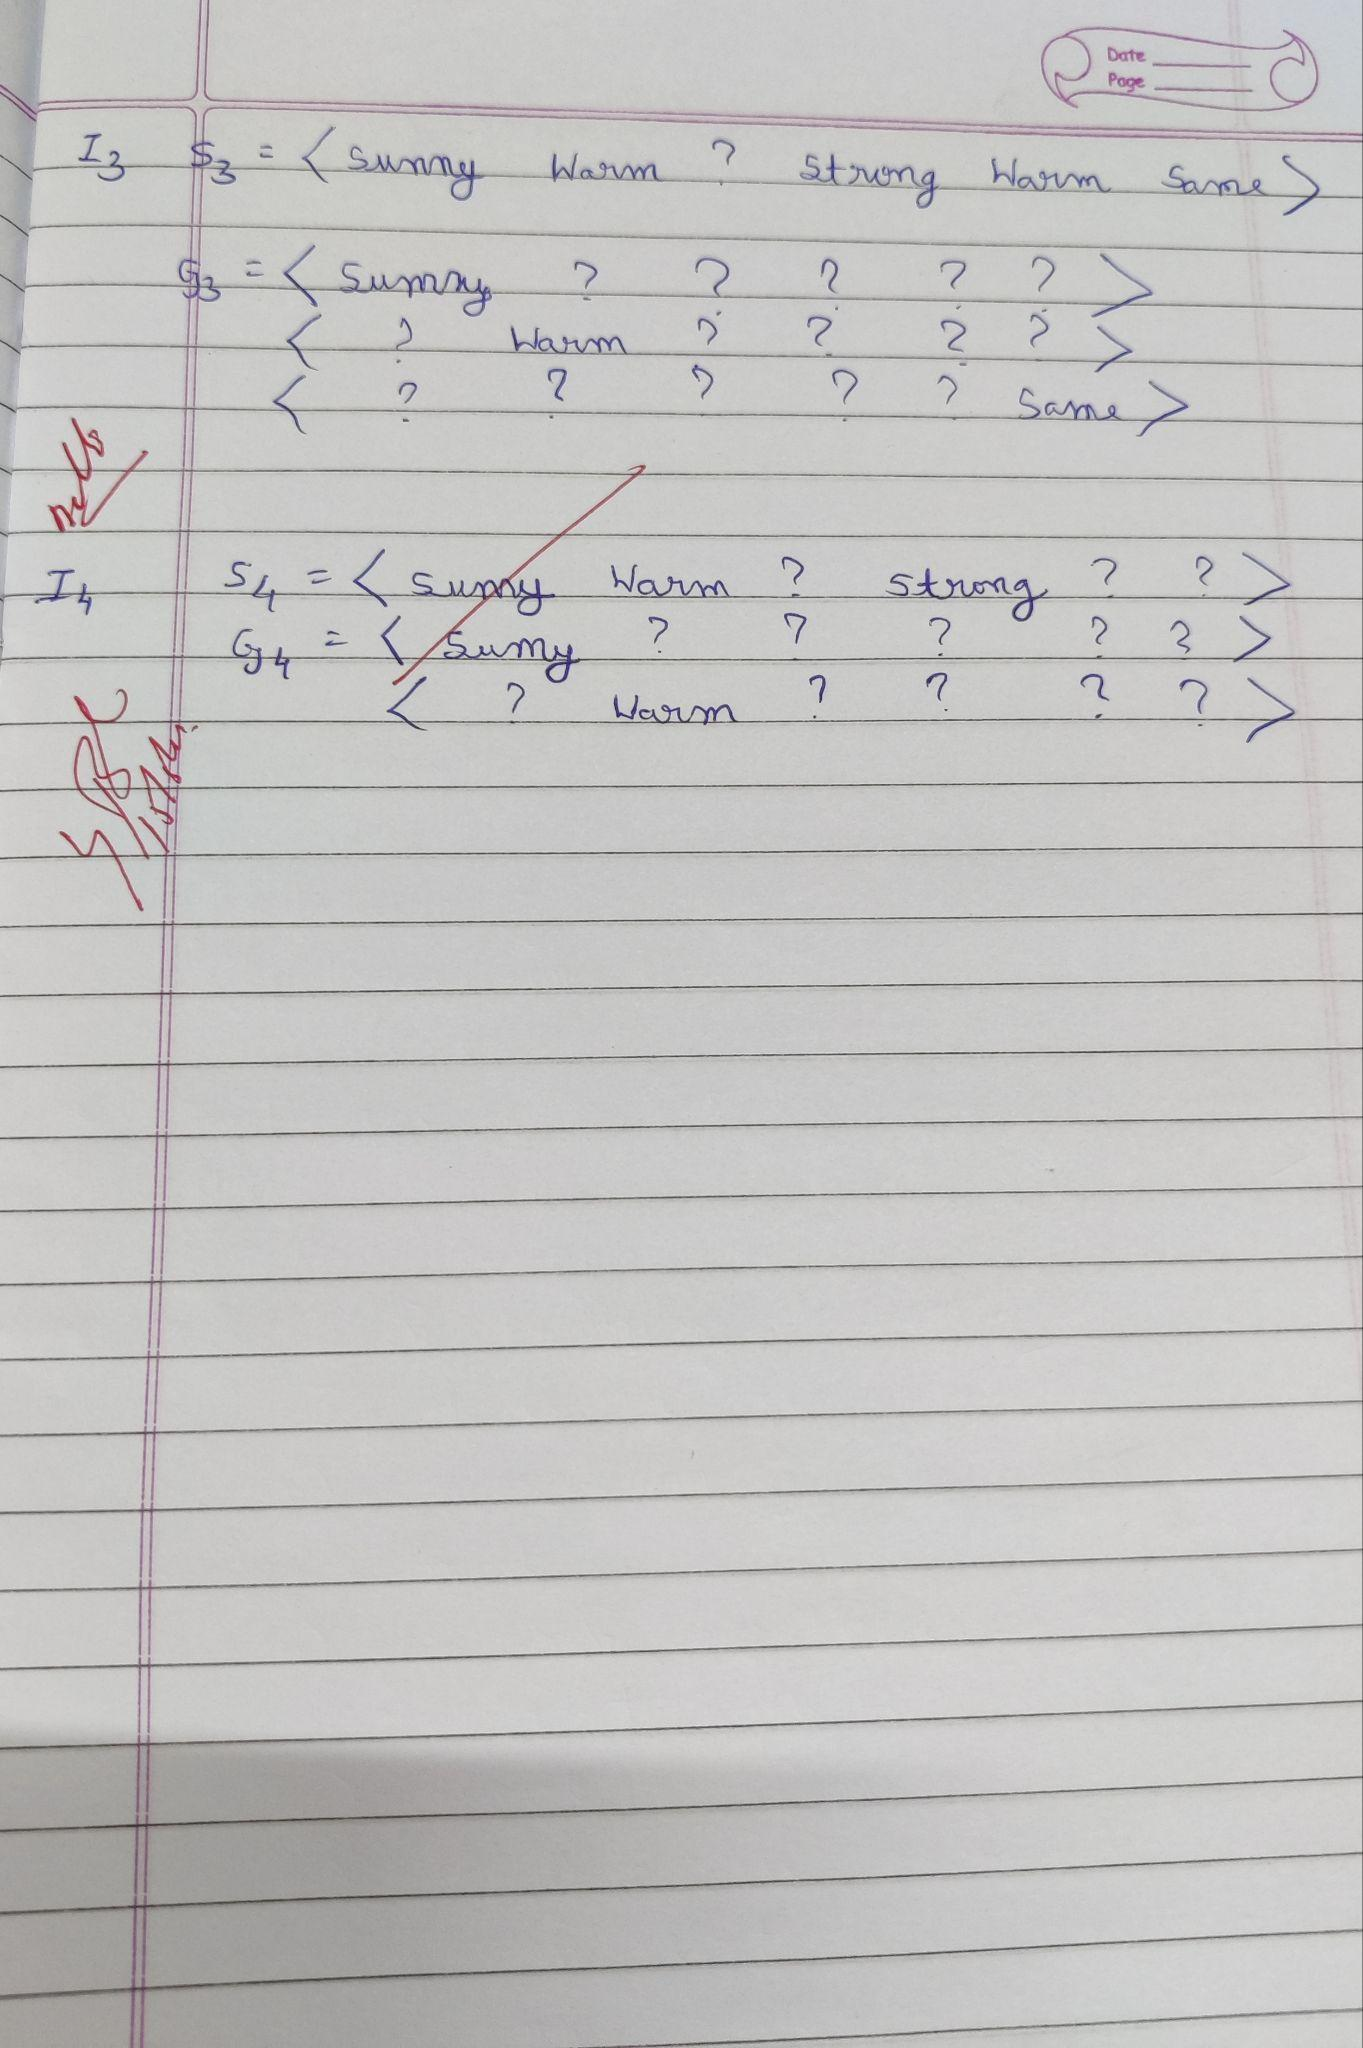 Date
Page
I3 S3 = < Sunny Warm ? Strong Warm Same >
G3 = < Sunny ? ? ? ? ? >
< ? Warm ? ? ? ? >
< ? ? ? ? ? Same >
I4 S4 = < Sunny Warm ? Strong ? ? >
G4 = < Sunny ? ? ? ? ? >
< ? Warm ? ? ? ? >